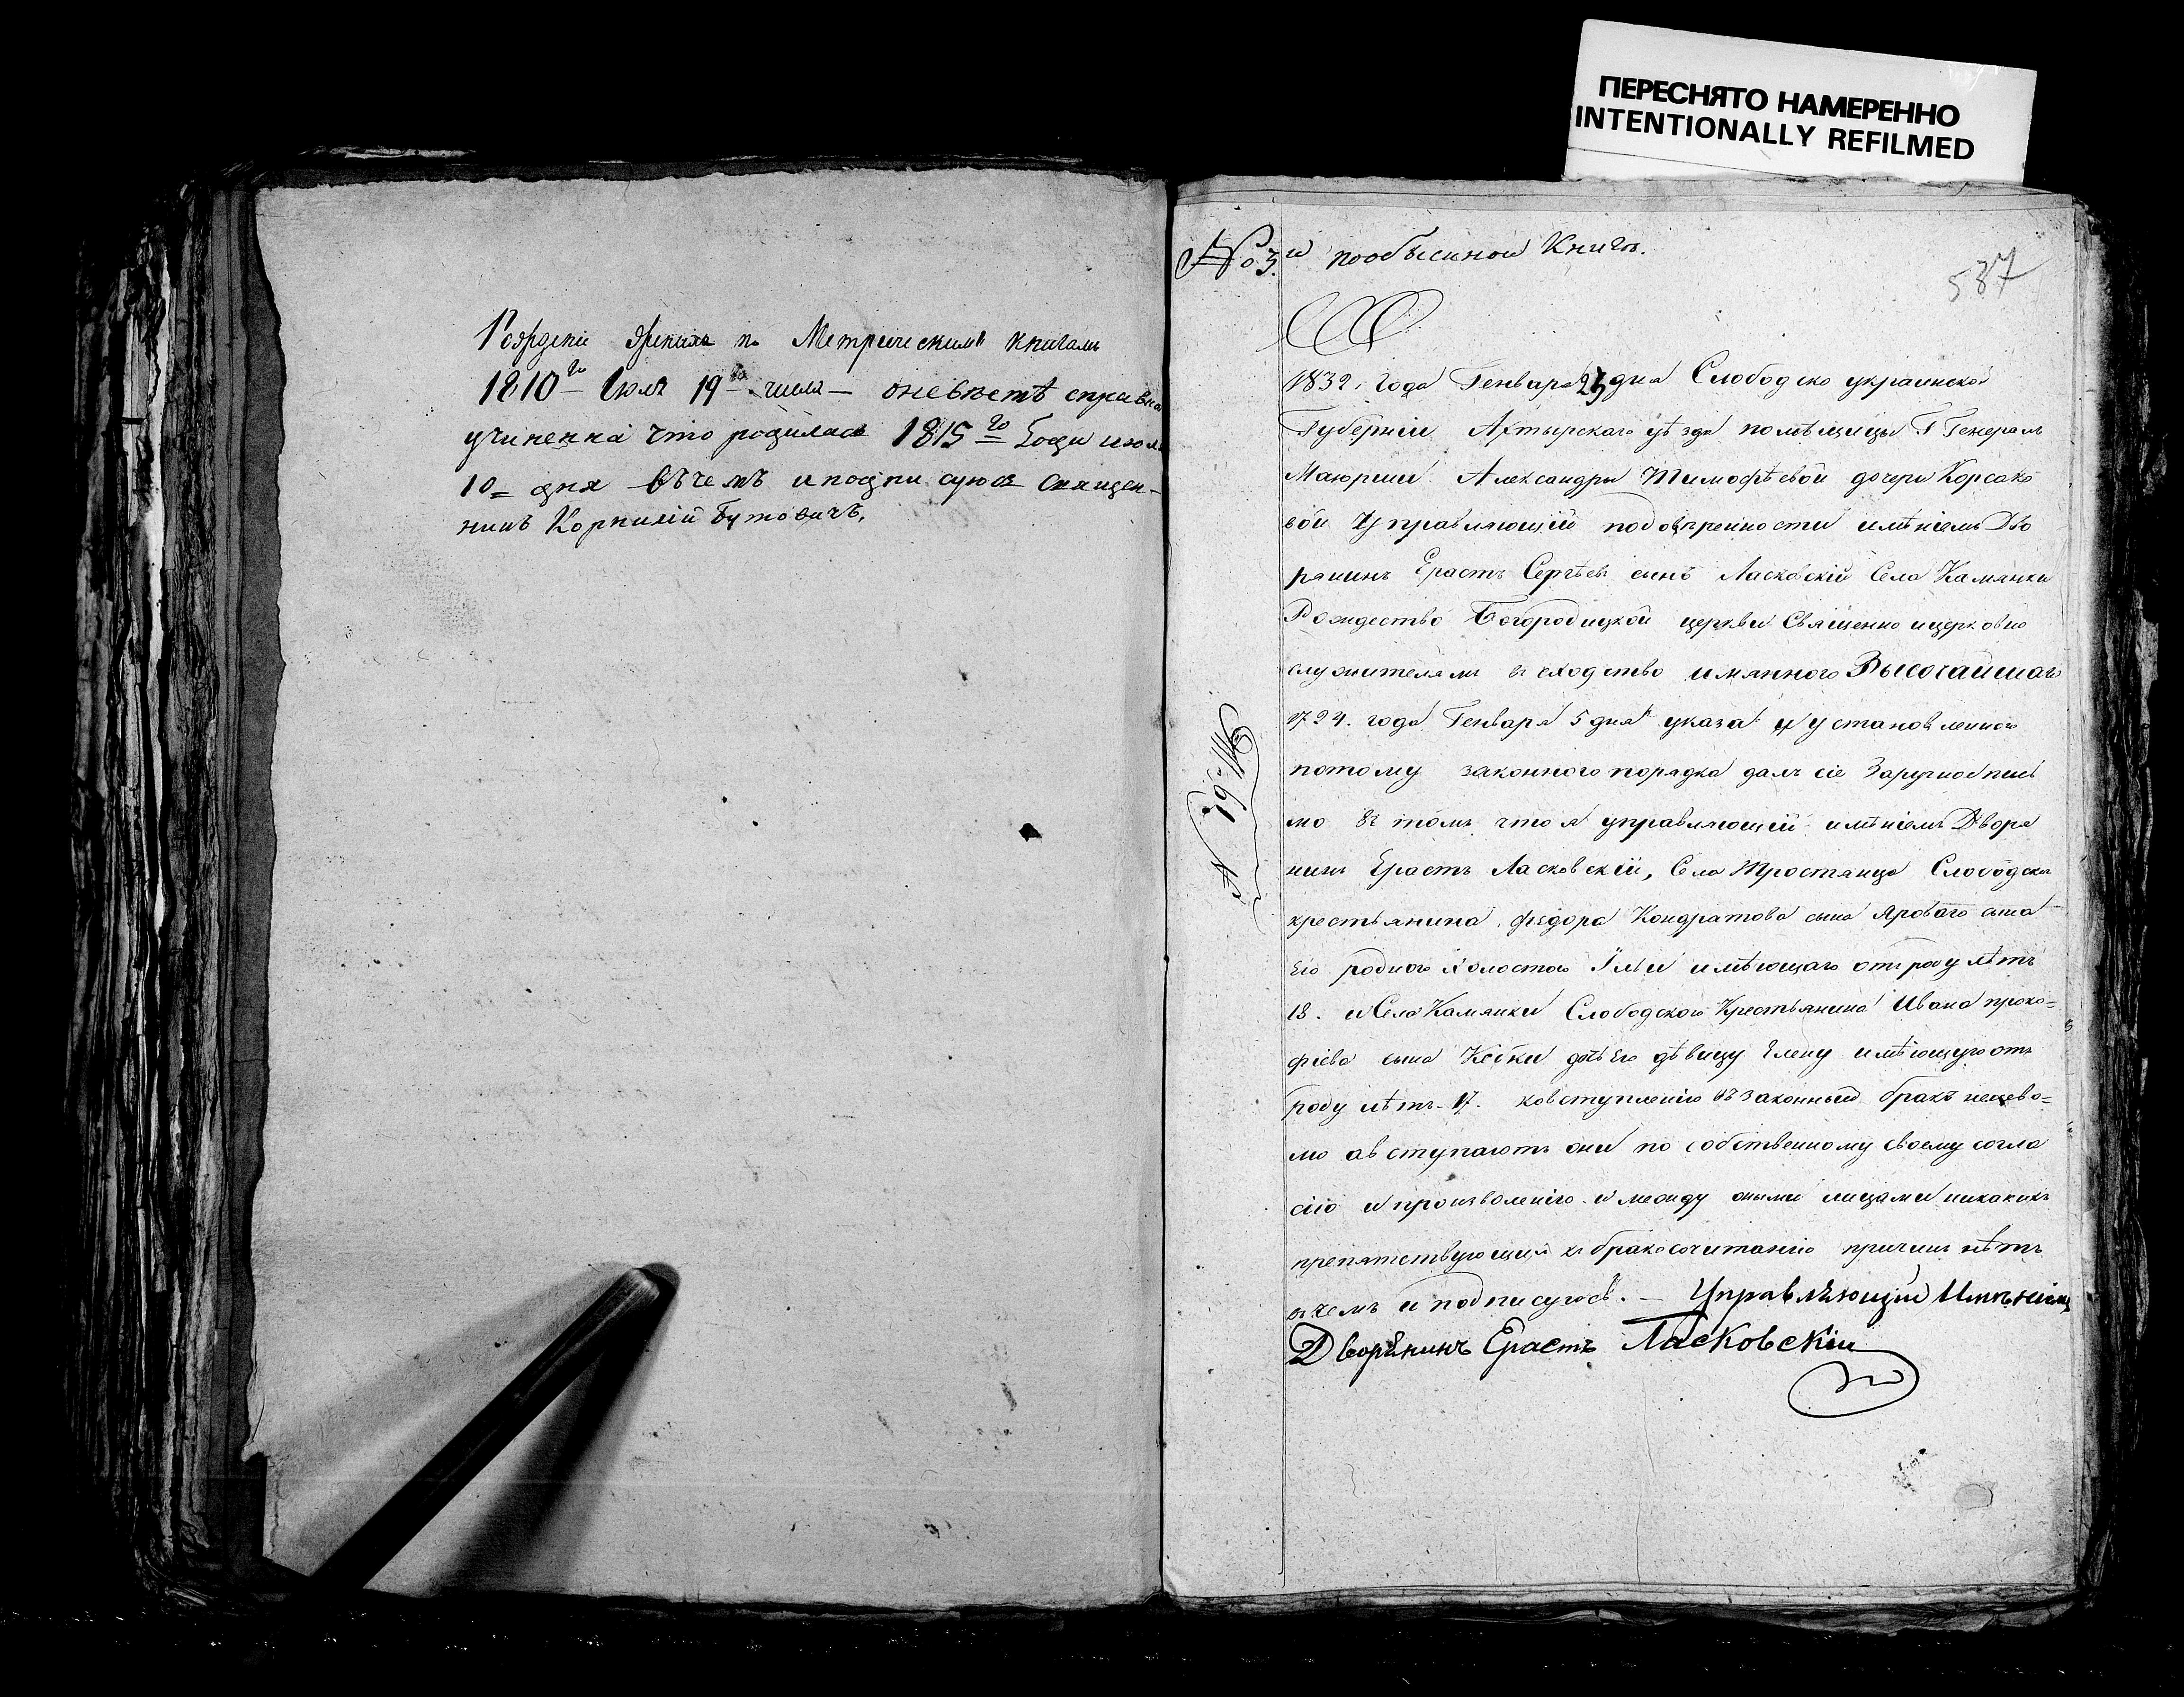 ПЕРЕСНЯТО НАМЕРЕННО
INTENTIONALLY REFILMED
по Метрическимъ книгамъ
1810го Июля 19го числа — оневестѣ справка
учиненна что родилась 1815го Года июля
10 дня въ чемъ и подписуюсь Священ-
никъ Корнилій Бутовичъ.
№ 3й пообыскной Книгѣ.
587
1832. года Генваря 23 дня Слободско украинской
Губерніи Ахтырскаго уѣзда помѣщицы Г Генералъ
Маюрши Александры Тимофѣевой дочери Корсако
вои Управляющій подовѣренности имѣніемъ Дво
рянинъ Ерастъ Сергѣевъ сынъ Ласковскій Села Камянки
Рождество Богородицкой церкви Священно ицерковно
служителямъ въ сходство имяннаго Высочайшаго
1724. года Генваря 5 дня указа и установленнаго
потому законнаго порядка далъ сіе Заручноеписъ
мо въ томъ что я управляющій имѣніемъ Дворя
нинъ Ерастъ Ласковскій, Села Тростянца Слободскаго
крестьянина федора Кондратова сына Яроваго сына
Его роднаго холостаго Илью имѣющаго отъ роду лѣтъ
18. и Села Камянки Слободскаго Крестьянина Ивана проко=
фіева сына дочь Его дѣвицу Елену имѣющую отъ
роду лѣтъ 17. ковступленію въ законный бракъ неневолю
мо авступаютъ они по собственному своему согла
сію и произволенію и между оными лицами никакихъ
препятствующихъ къ бракосочитанію причинъ нѣтъ
въ чемъ и подписуюсь. — Управляющий Имѣниемъ
Дворянинъ Ерастъ Ласковскій